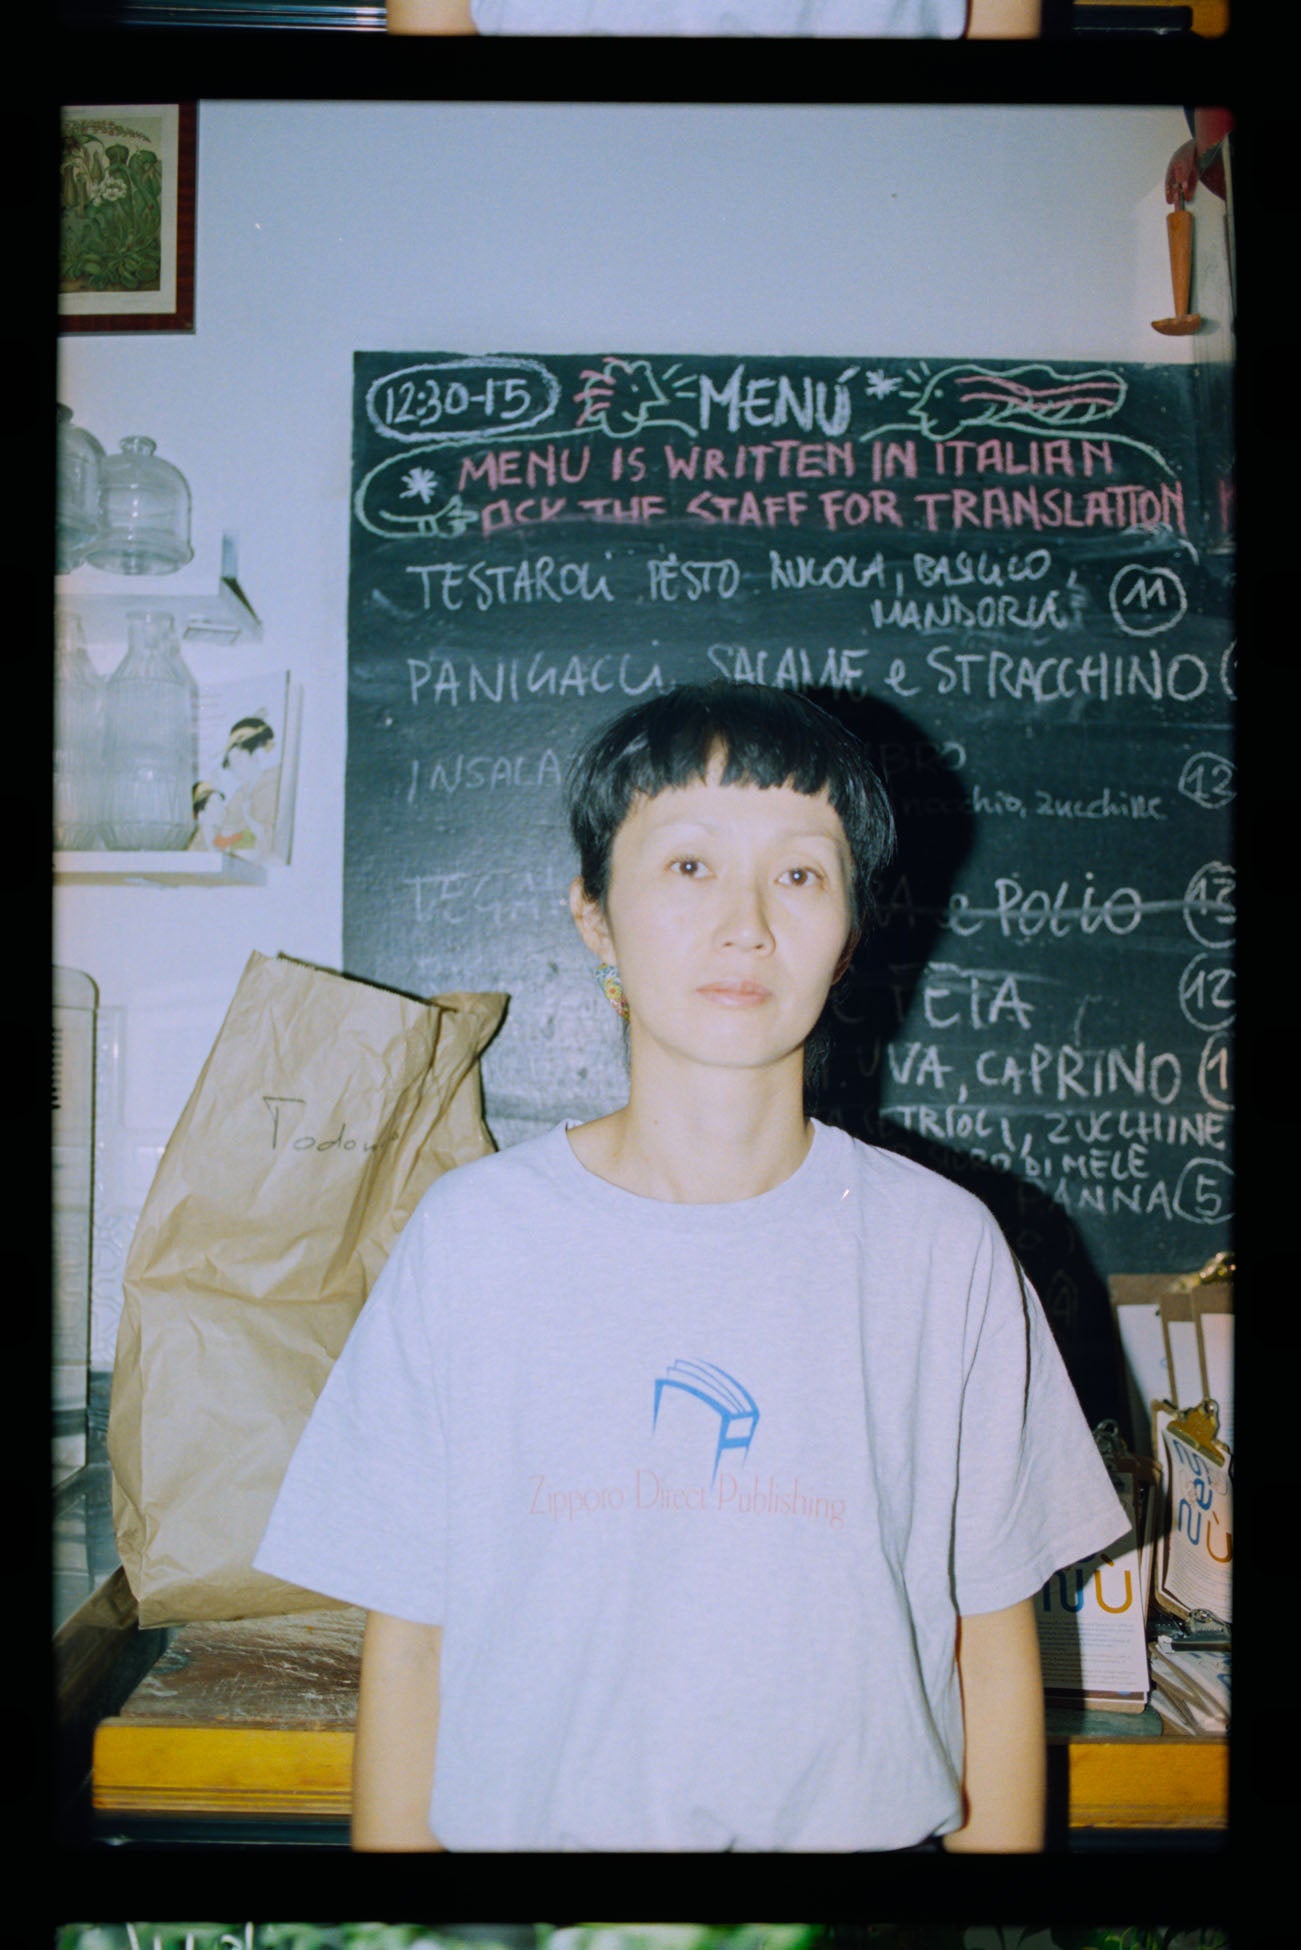 12:30-15 MENÚ
MENU IS WRITTEN IN ITALIAN
ASK THE STAFF FOR TRANSLATION
TESTAROLI PESTO RUCOLA, BASILICO,
MANDORLE 11
PANIGACCI SALAME e STRACCHINO
INSALA BRO 12
nocchio, zucchine
TEGA RA e POLLO 13
e FETA 12
UVA, CAPRINO 1
CETRIOLI, ZUCCHINE
DI MELE
PANNA 5
Todomi
Zipporo Direct Publishing